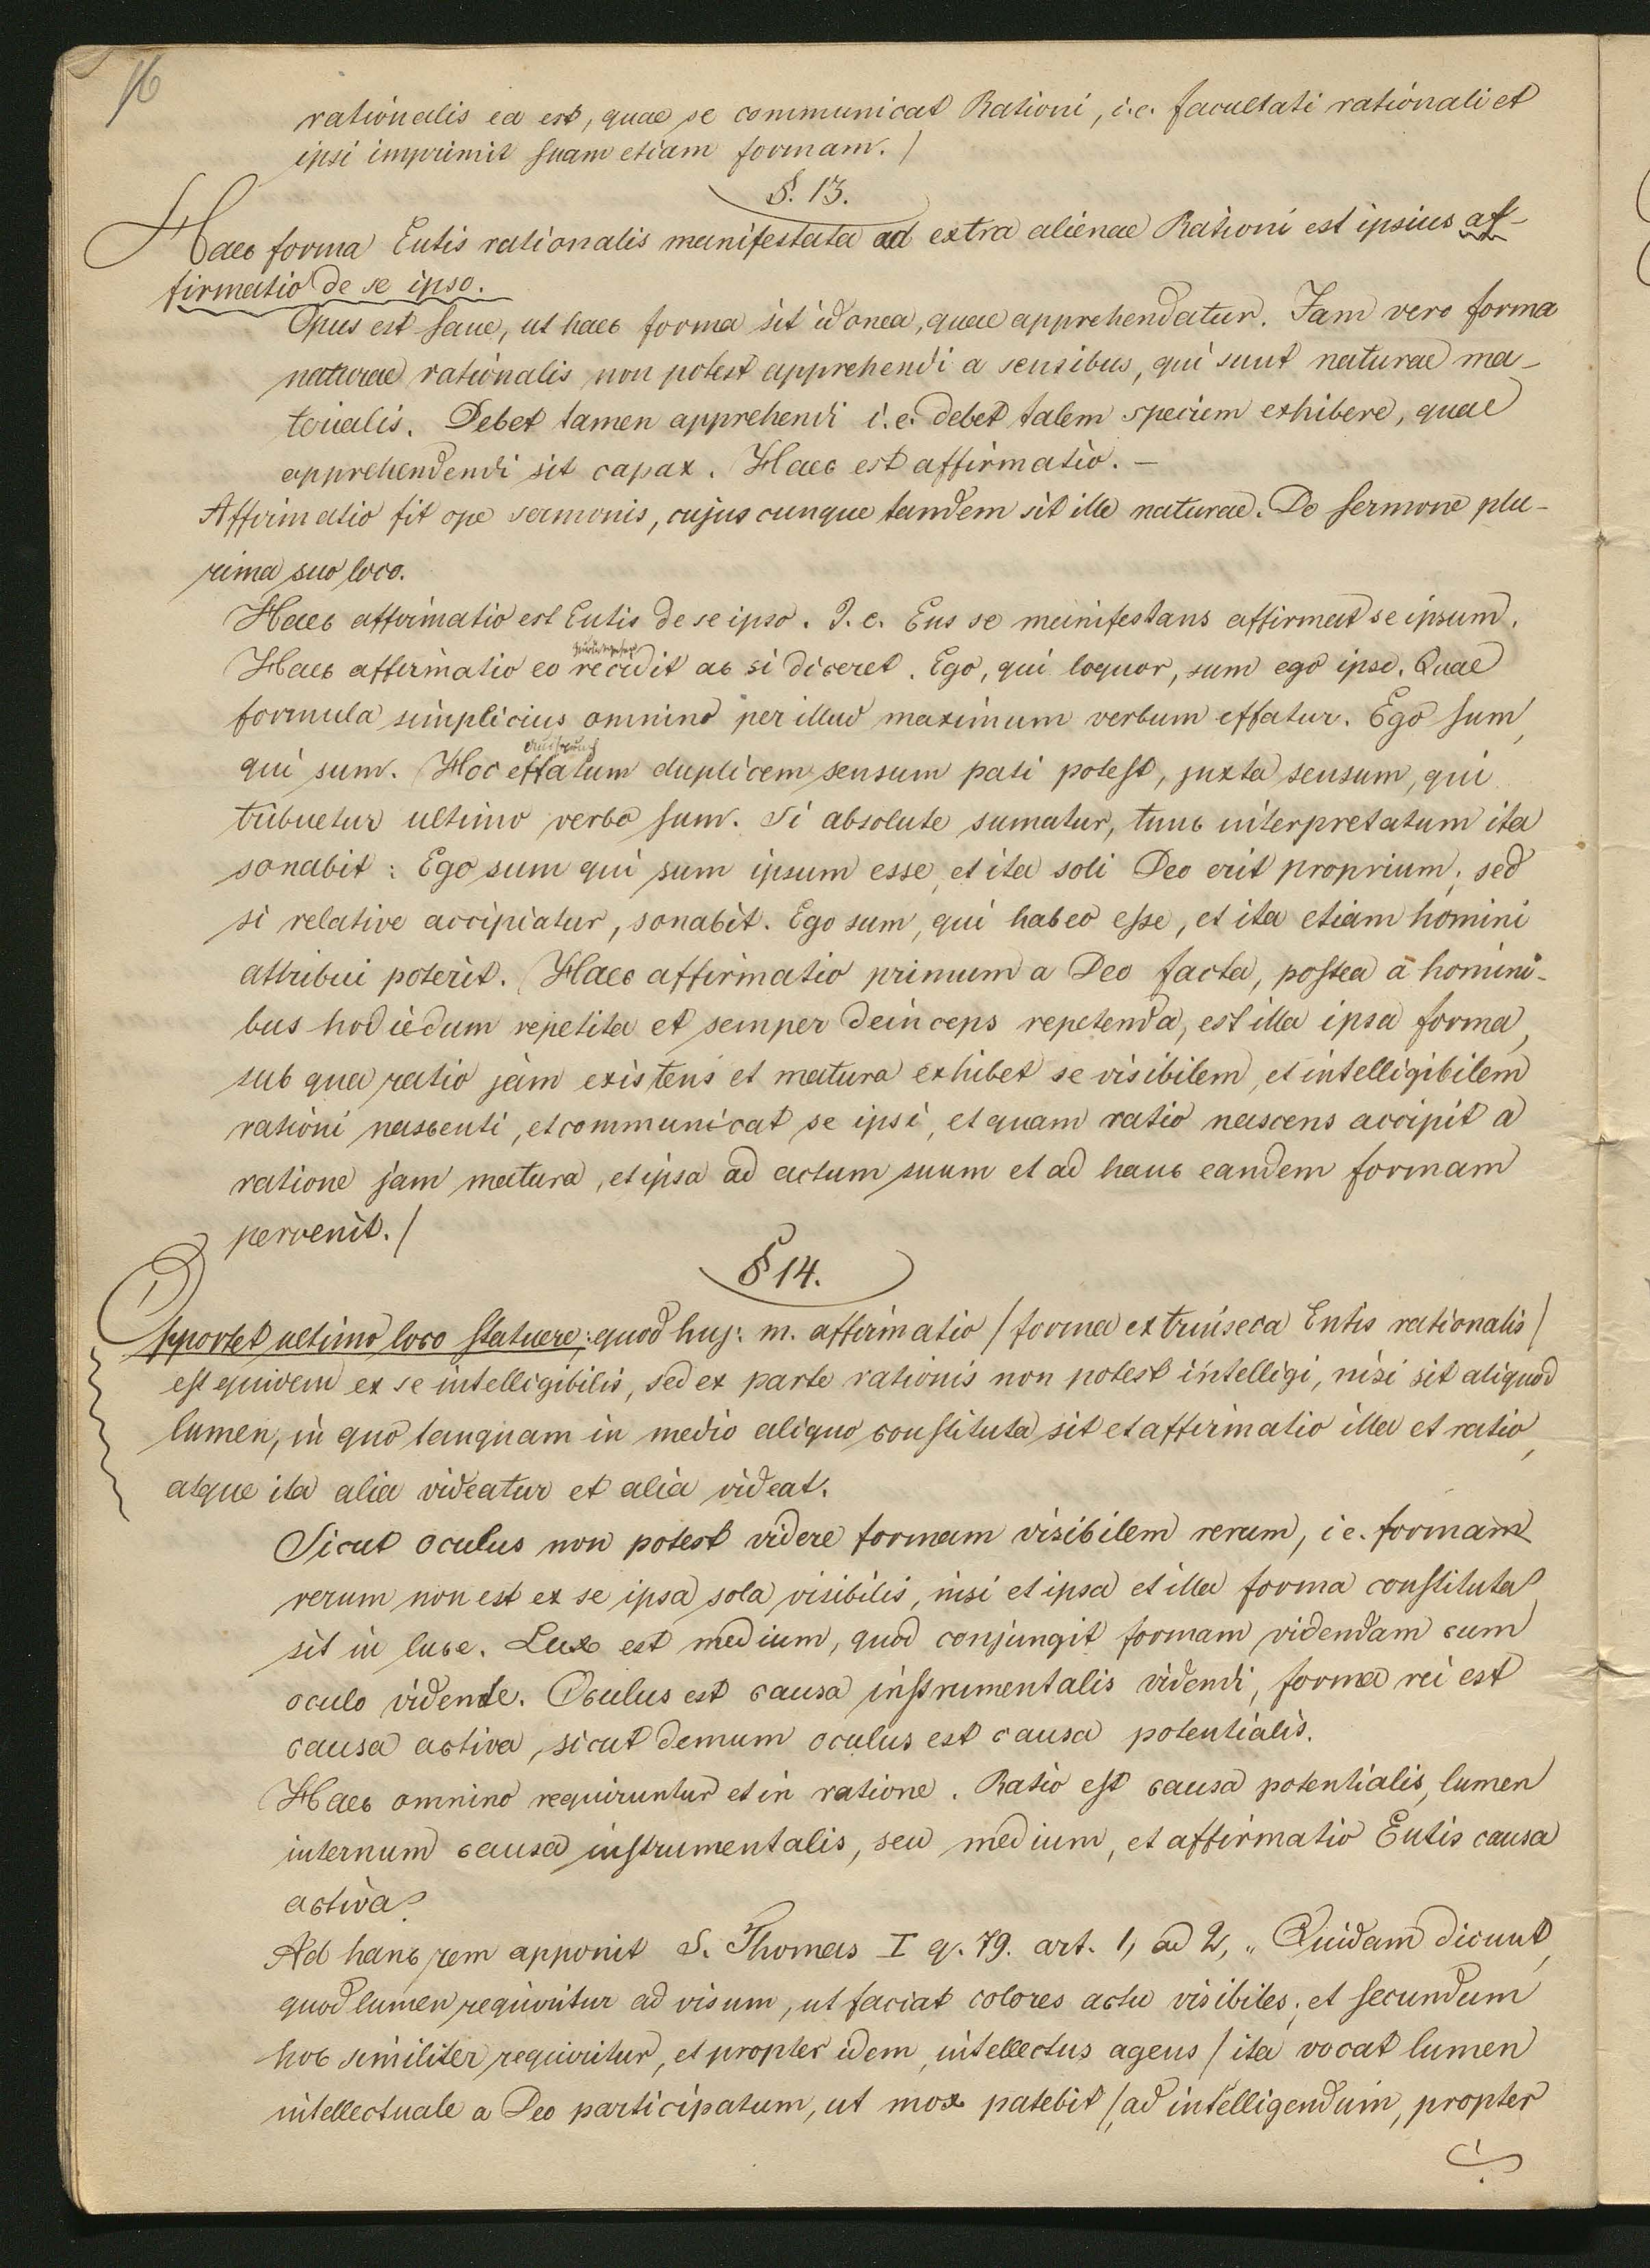 16
rationalis ea est, quae se communicat Rationi, i.e. facultati rationali et
ipsi imprimit suam etiam formam. /
§. 13.
Haec forma Entis rationalis manifestata ad extra alienae Rationi est ipsius af-
firmatio de se ipso.
Opus est sane, ut haec forma sit idonea, quae apprehendatur. Iam vero forma
naturae rationalis non potest apprehendi a sensibus, qui sunt naturae ma-
terialis. Debet tamen apprehendi i.e. debet talem speciem exhibere, quae
apprehendendi sit capax. Haec est affirmatio. —
Affirmatio fit ope sermonis, cujuscunque tandem sit ille naturae. De sermone plu-
rima suo loco.
Haec affirmatio est Entis de se ipso. I. e. Ens se manifestans affirmat se ipsum.
Haec affirmatio eo recidit ac si diceret. Ego, qui loquor, sum ego ipse. Quae
formula simplicius omnino per illud maximum verbum effatur. Ego sum,
Ausspruch
qui sum. Hoc effatum duplicem sensum pati potest, juxta sensum, qui
tribuetur ultimo verbo sum. Si absolute sumatur, tunc interpretatum ita
sonabit: Ego sum qui sum ipsum esse, et ita soli Deo erit proprium; sed
si relative accipiatur, sonabit. Ego sum, qui habeo esse, et ita etiam homini
attribui poterit. Haec affirmatio primum a Deo facta, postea a homini-
bus hodiedum repetita et semper deinceps repetenda, est illa ipsa forma,
sub qua ratio jam existens et matura exhibet se visibilem, et intelligibilem
rationi nascenti, et communicat se ipsi, et quam ratio nascens accipit a
ratione jam matura, et ipsa ad actum suum et ad hanc eandem formam
pervenit. /
§ 14.
Opportet ultimo loco statuere: quod huj: m. affirmatio / forma extrinseca Entis rationalis /
est quidem ex se intelligibilis, sed ex parte rationis non potest intelligi, nisi sit aliquod
lumen, in quo tanquam in medio aliquo constituta sit et affirmatio illa et ratio,
atque ita alia videatur et alia videat.
Sicut oculus non potest videre formam visibilem rerum, i e. formam
rerum non est ex se ipsa sola visibilis, nisi et ipsa et illa forma constituta
sit in luce. Lux est medium, quod conjungit formam videndam cum
oculo vidente. Oculus est causa instrumentalis videndi, forma rei est
causa activa, sicut demum oculus est causa potentialis.
Haec omnino requiruntur et in ratione. Ratio est causa potentialis, lumen
internum causa instrumentalis, seu medium, et affirmatio Entis causa
activa.
Ad hanc rem apponit S. Thomas I q. 79. art. 1, ad 2, „ Quidam dicunt,
quod lumen requiritur ad visum, ut faciat colores actu visibiles; et secundum
hoc similiter requiritur, et propter idem, intellectus agens / ita vocat lumen
intellectuale a Deo participatum, ut mox patebit / ad intelligendum, propter